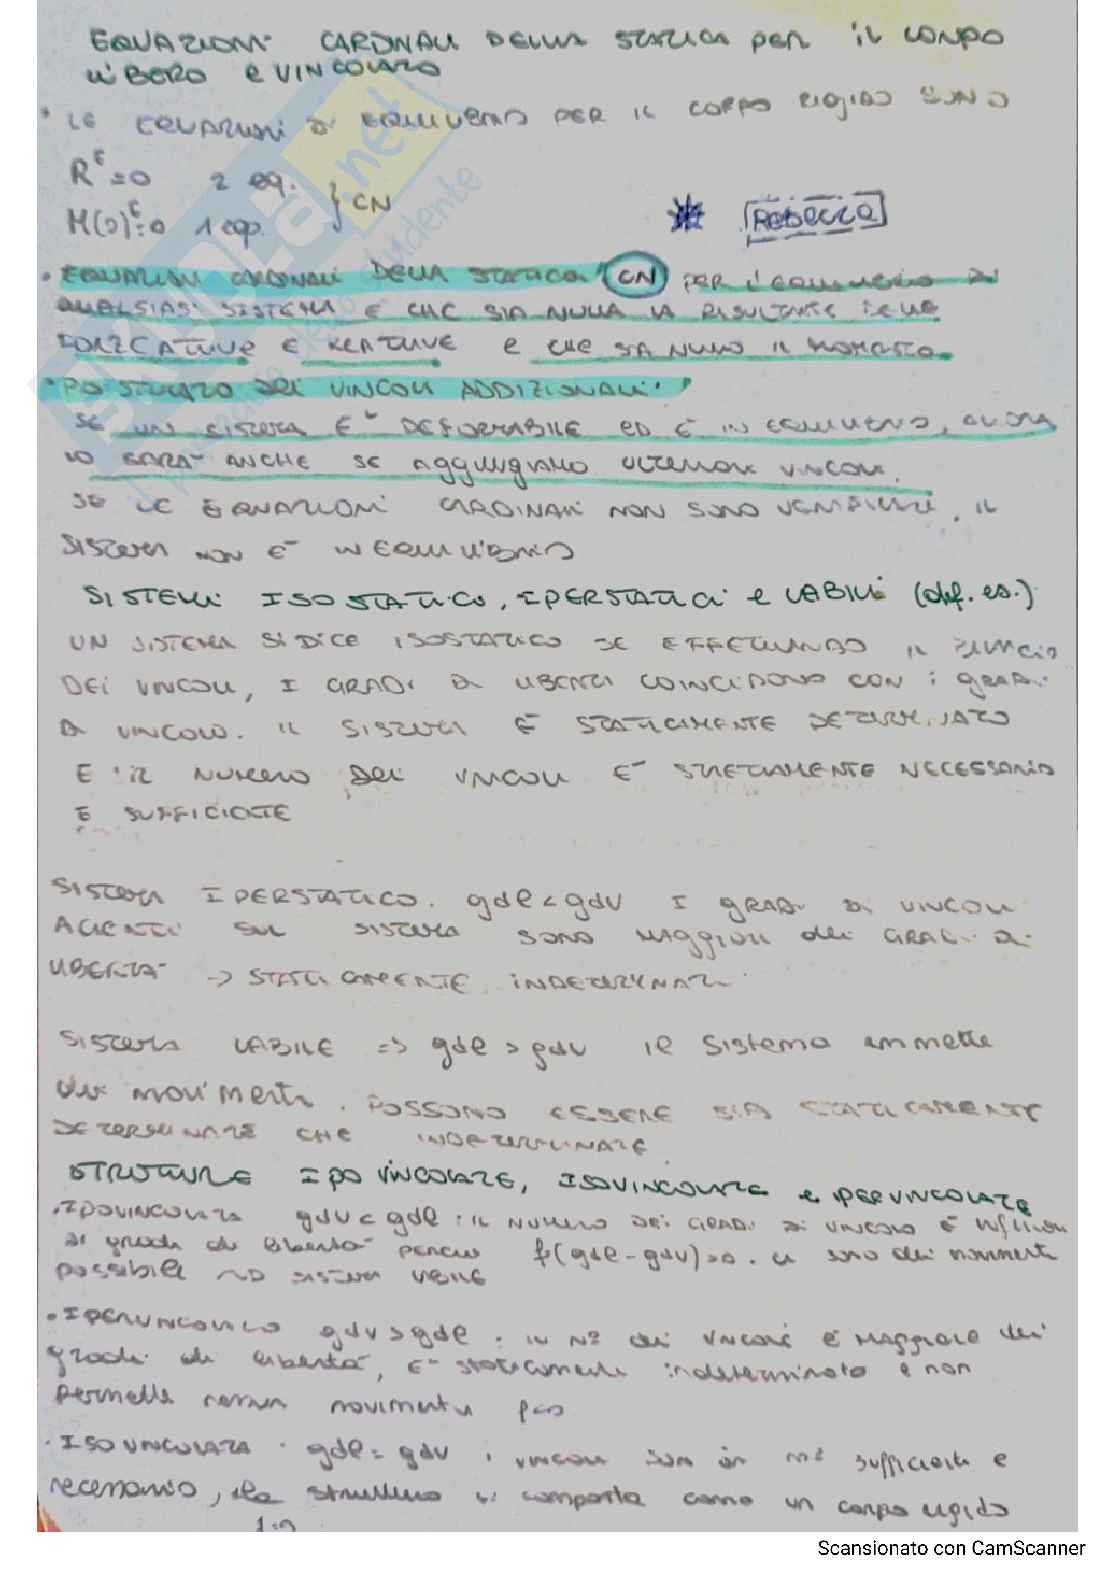 EQUAZIONI CARDINALI DELLA STATICA PER IL CORPO
LIBERO E VINCOLATO
• LE EQUAZIONI DI EQUILIBRIO PER IL CORPO RIGIDO SONO
R^E=0 2 eq.
M(O)^E=0 1 eq. } CN
Rebecca
• EQUAZIONI CARDINALI DELLA STATICA (CN) PER L'EQUILIBRIO DI
QUALSIASI SISTEMA È CHE SIA NULLA LA RISULTANTE DELLE
FORZE ATTIVE E REATTIVE E CHE SIA NULLO IL MOMENTO.
"POSTULATO DEI VINCOLI ADDIZIONALI"
SE UN SISTEMA È DEFORMABILE ED È IN EQUILIBRIO, ALLORA
LO SARÀ ANCHE SE AGGIUNGIAMO ULTERIORI VINCOLI.
SE LE EQUAZIONI CARDINALI NON SONO VERIFICATE, IL
SISTEMA NON È IN EQUILIBRIO
SISTEMI ISOSTATICO, IPERSTATICI e LABILI (def. es.)
UN SISTEMA SI DICE ISOSTATICO SE EFFETTUANDO IL BILANCIO
DEI VINCOLI, I GRADI DI LIBERTÀ COINCIDONO CON I GRADI
DI VINCOLO. IL SISTEMA È STATICAMENTE DETERMINATO
E IL NUMERO DEI VINCOLI È STRETTAMENTE NECESSARIO
E SUFFICIENTE
SISTEMA IPERSTATICO. gdl < gdv I GRADI DI VINCOLI
AGENTI SUL SISTEMA SONO MAGGIORI dei GRADI DI
LIBERTÀ -> STATICAMENTE INDETERMINATI
SISTEMA LABILE => gdl > gdv il sistema ammette
dei movimenti. POSSONO ESSERE SIA STATICAMENTE
DETERMINATE CHE INDETERMINATE
STRUTTURE IPOVINCOLATE, ISOVINCOLATE e IPERVINCOLATE
• IPOVINCOLATA gdv < gdl: IL NUMERO DEI GRADI DI VINCOLO È
di gradi di libertà perciò (gdl - gdv)>0. ci sono dei movimenti
possibili SISTEMA LABILE
• IPERVINCOLATO gdv > gdl. IL N° dei VINCOLI È MAGGIORE dei
gradi di libertà, È staticamente indeterminato e non
permette nessun movimento
• ISOVINCOLATA. gdl = gdv, i vincoli sono in n° sufficiente e
necessario, la struttura si comporta come un corpo rigido
Scansionato con CamScanner